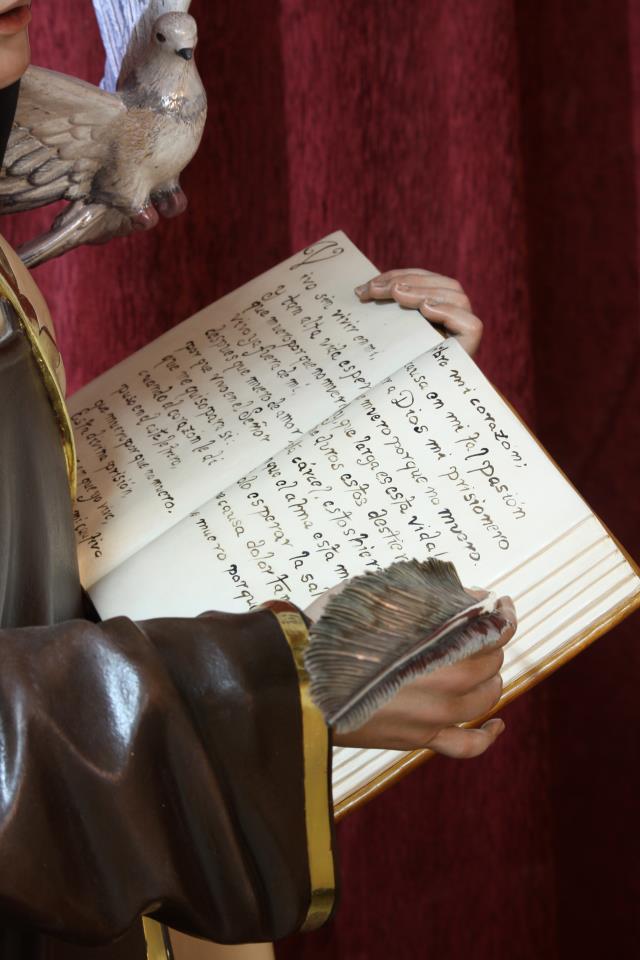 Vivo sin vivir en mi,
y tan alta vida esper
que muero porque no muero
Vivo ya fuera de mi,
despues que muero de amor
por que vivo en el Señor
que me quiso para si:
cuando el corazon le di
puso en el este letrero,
que muero porque no muero.
Esta divina prisión
que yo vivo,
mi cautivo
bre mi corazon;
causa en mi tal pasión
a Dios mi prisionero
muero porque no muero.
que larga es esta vida!
duros estos destie
cárcel, estos hier
que el alma esta m
olo esperar la sal
causa dolor tan
muero porqu